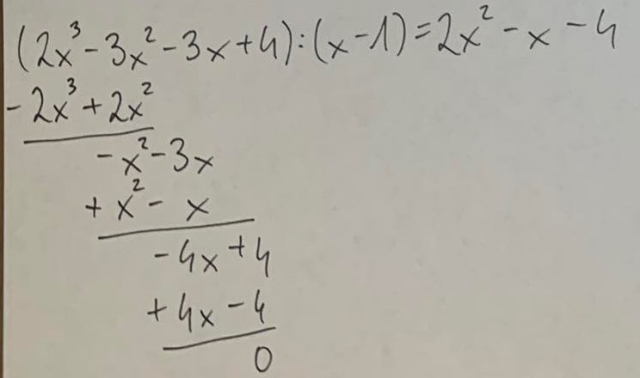 (2x³-3x²-3x+4):(x-1)=2x²-x-4
-2x³+2x²
-x²-3x
+x²-x
-4x+4
+4x-4
0